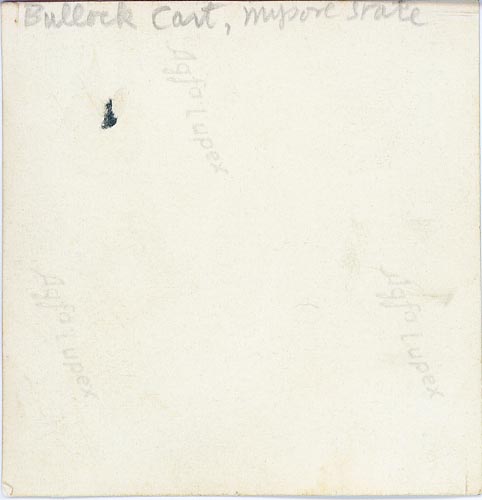 Bullock Cart, Mysore State
Agfa Lupex
Agfa Lupex
Agfa Lupex